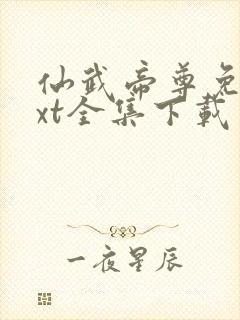 仙武帝尊免
xt全集下载
一夜星辰